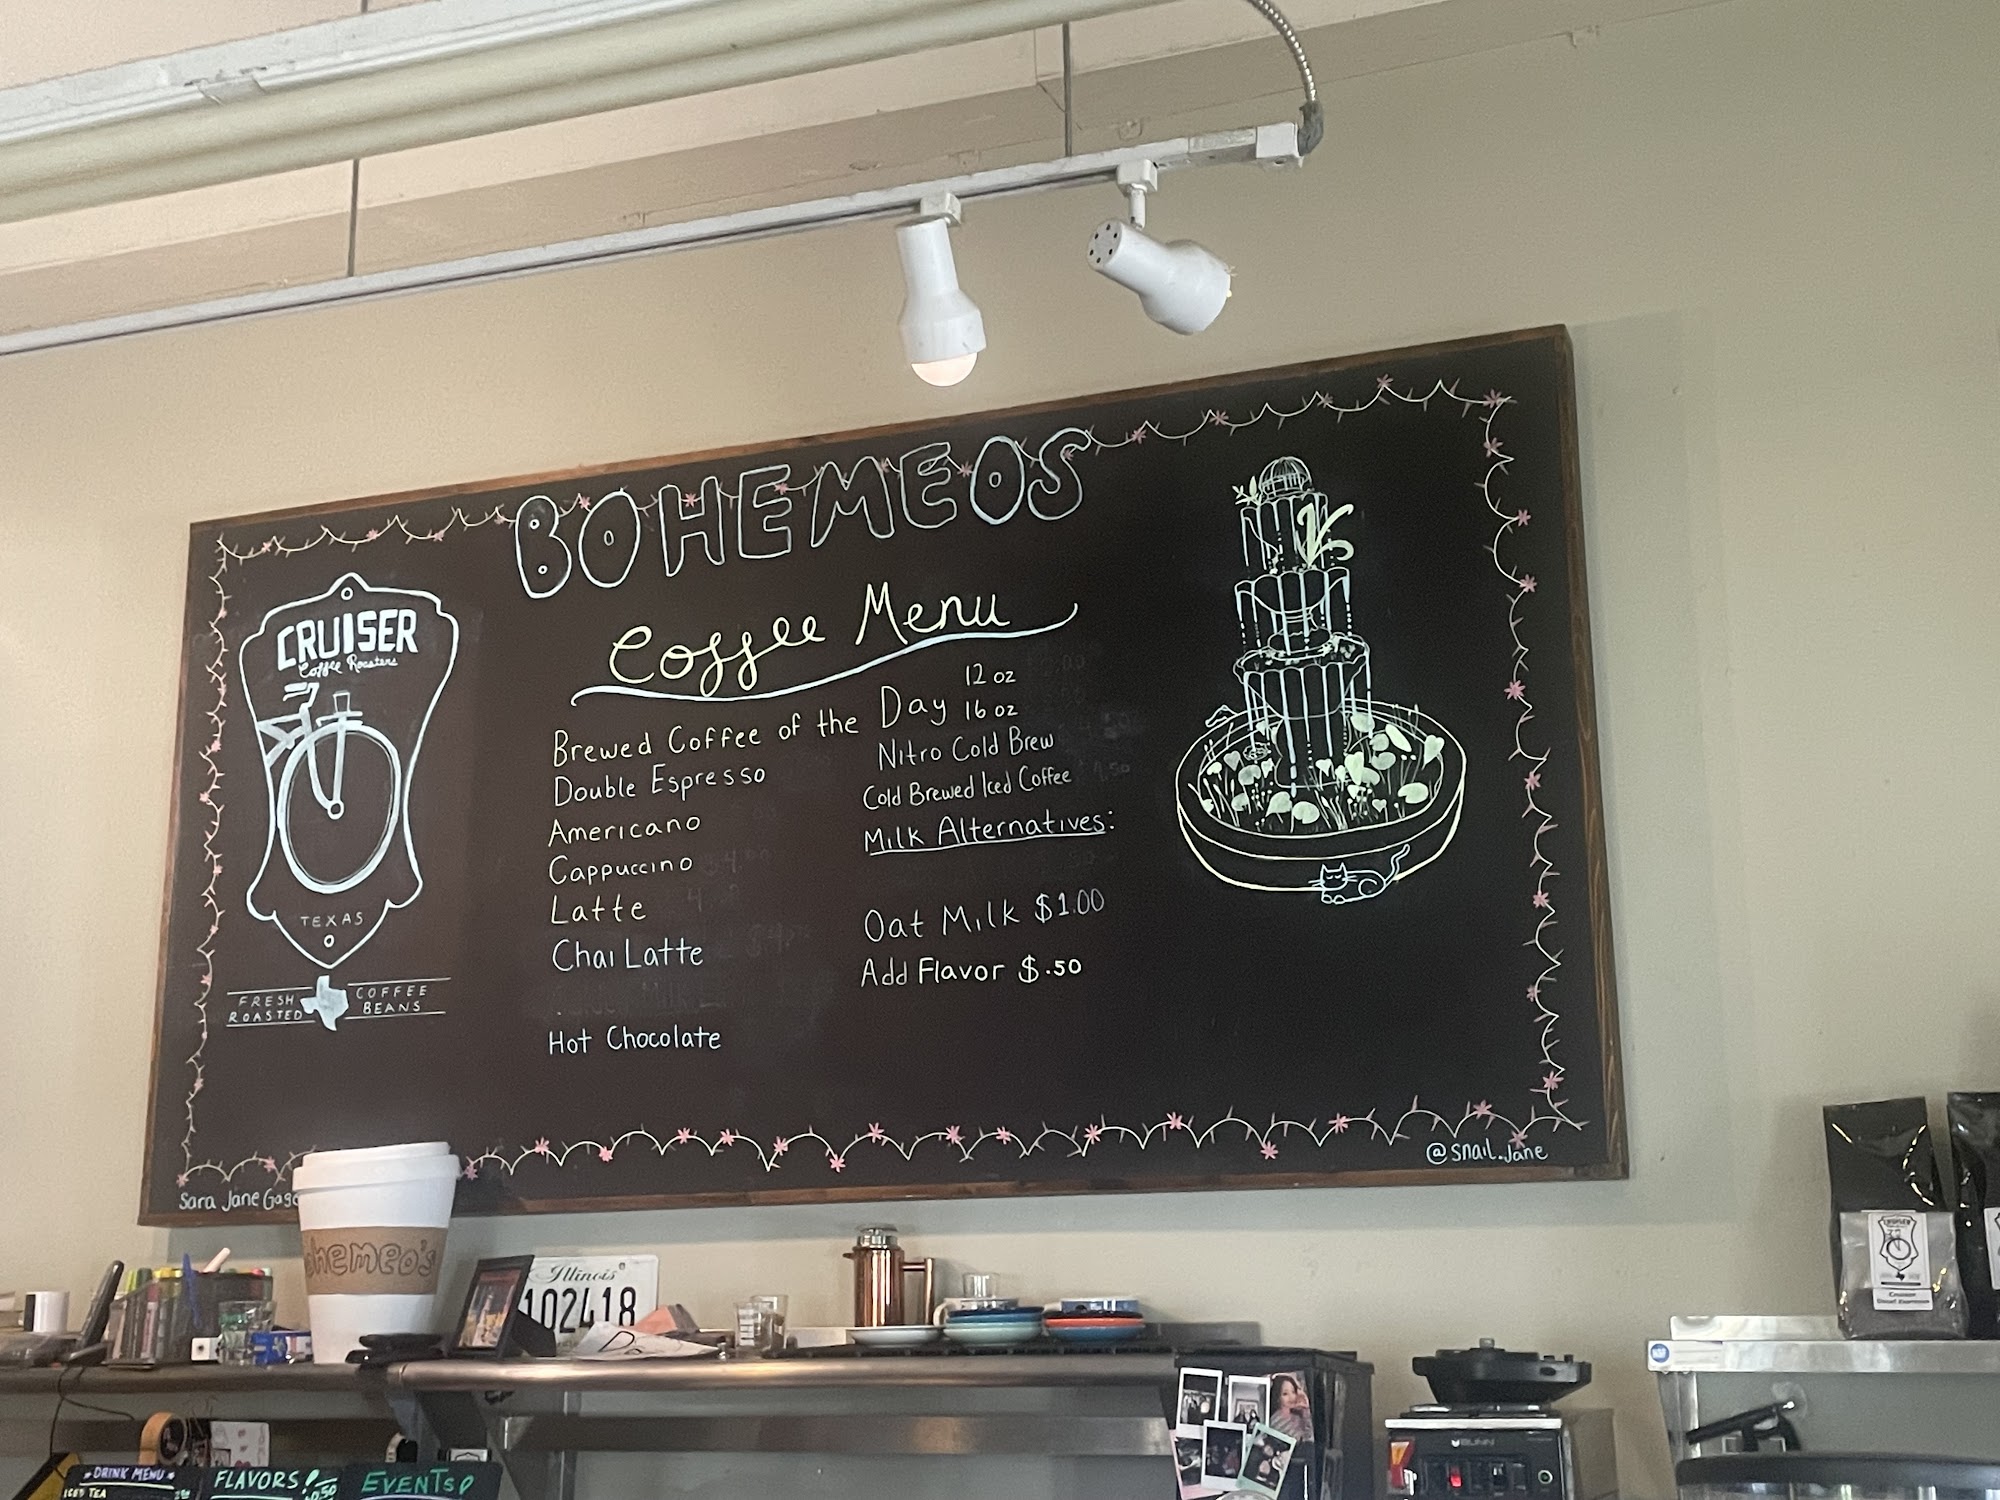 BOHEMEOS
Coffee Menu
CRUISER
Coffee Roasters
TEXAS
FRESH ROASTED
COFFEE BEANS
Brewed Coffee of the Day 12 oz
16 oz
Double Espresso
Americano
Cappuccino
Latte
Chai Latte
Hot Chocolate
Nitro Cold Brew
Cold Brewed Iced Coffee
Milk Alternatives:
Oat Milk $1.00
Add Flavor $.50
@snail.jane
Sara Jane Gage
Bohemeo's
Illinois
102418
CRUISER
BUNN
DRINK MENU
ICED TEA
FLAVORS!
EVENTS